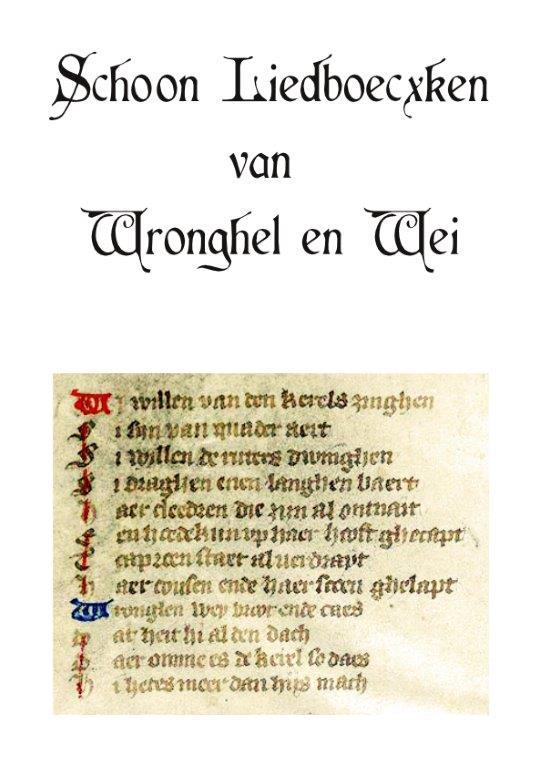 Schoon Liedboecxken
van
Wronghel en Wei
Wi willen van den kerels zinghen
Si sijn van quader aert
Si willen de ruters dwinghen
Si draghen enen langhen baert
Haer cleedren die zijn al ontnait
Een hoedekijn up haer hooft ghecapt
Tcaproen staet al verdrayt
Haer cousen ende haer scoen ghelapt
Wronglen wey broot ende caes
Dat heit hi al den dach
Daer omme es de kerel so daes
Hi hetes meer dan hijs mach